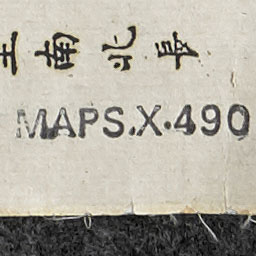 南北長
MAPS.X.490